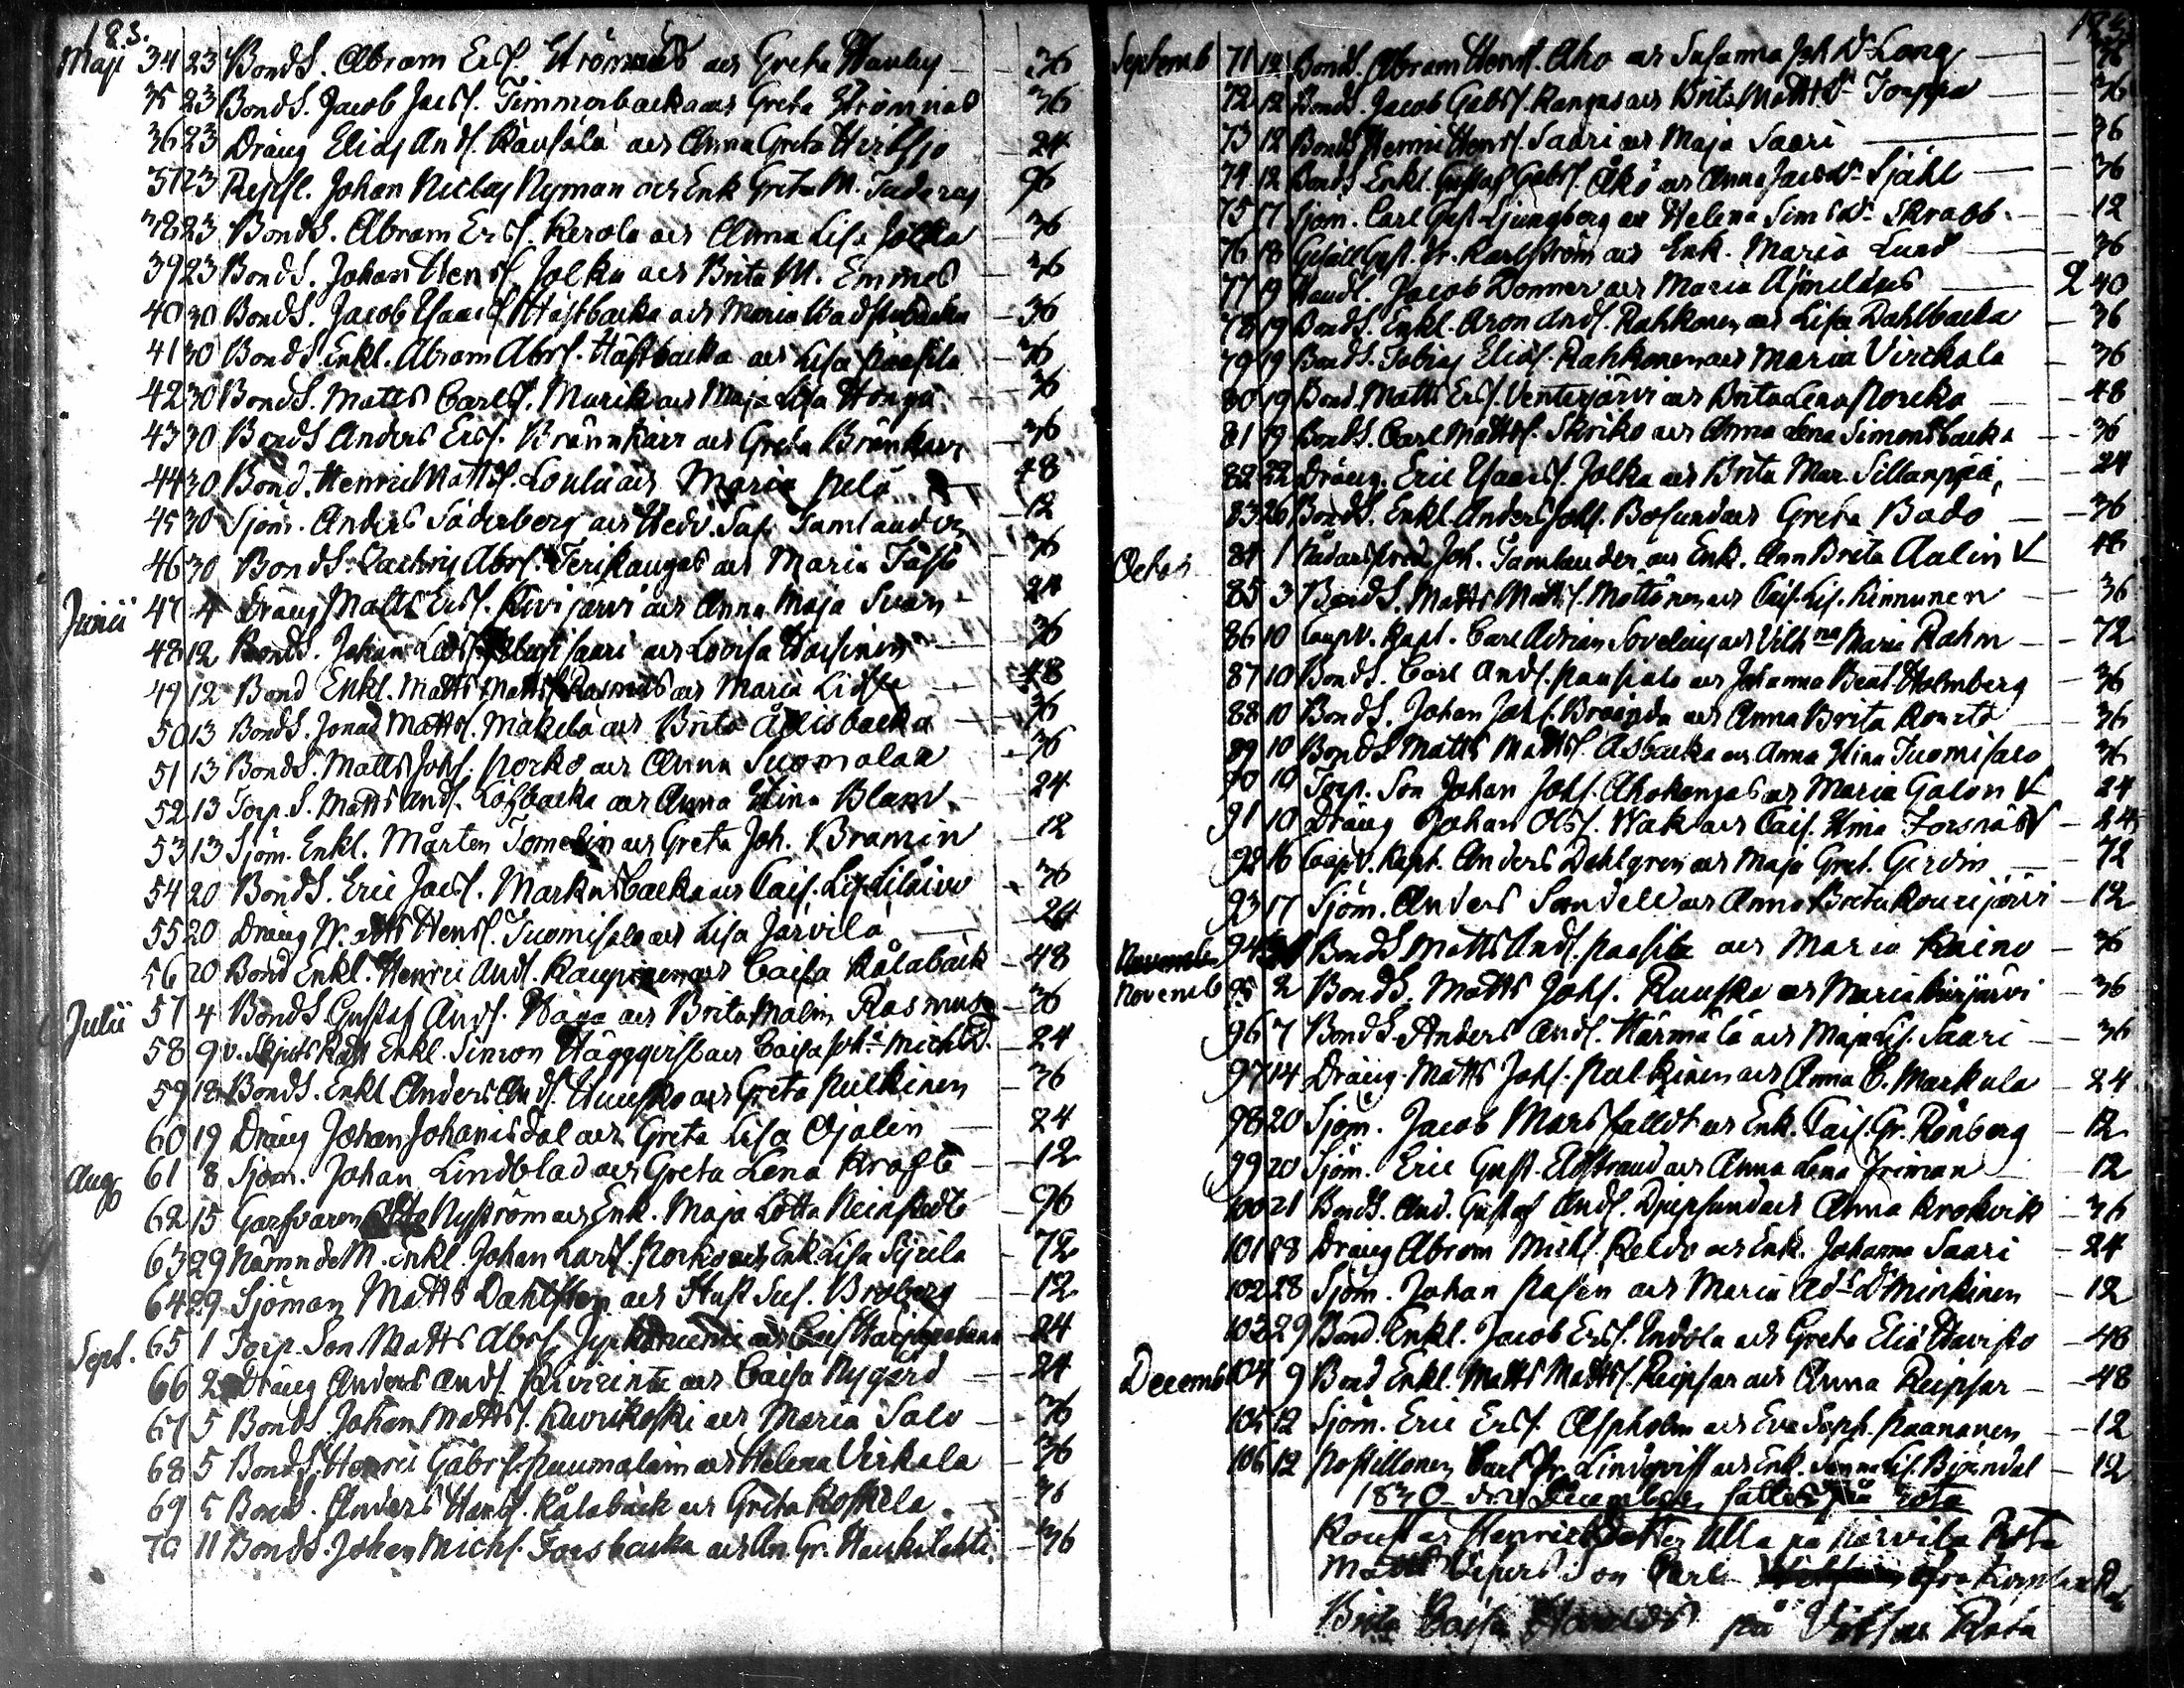 183.
Maji 34 23 BondS. Abram Ers. Strömnäs och Greta Wanley — 36
35 23 BondS. Jacob Jacs. Timmerbacka och Greta Strömnäs 36
36 23 Dräng Elias Ands. Kausala och Anna Greta Hirssjö — 24
37 23 Repsl. Johan Niclas Nyman och Enk Greta M. Tuderus 96
38 23 BondS. Abram Ers. Kerola och Anna Lisa Jolka — 36
39 23 BondS. Johan Hens. Jolka och Brita M. Emmes — 36
40 30 BondS. Jacob Isaacs. Hästbacka och Maria — 36
41 30 BondS. Enkl. Abram Abrs. Hästbacka och Lisa Paasila — 36
42 30 BondS. Matts Carls. Murik och Maja Lisa Honga — 36
43 30 BondS Anders Ers. Brännkärr och Greta Brännkärr — 36
44 30 Bond. Henric Matts. Loulu och Maria Pelo — 48
45 30 Sjöm. Anders Söderberg och Hedv. Sus. Tamlander — 12
46 30 BondS. Zachris Abrs. Terikangas och Maria — 36
Junii 47 4 Dräng Matts Ers. Kivijärvi och Anna Maja Svan — 24
48 12 BondS. Johan Saari och Lovisa — 36
49 12 Bond Enkl. Matts Matts. Rasmus och Maria — 48
50 13 BondS. Jonas Matts. Mäkelä och Brita Ållisbacka — 36
51 13 BondS. Matts Johs. Porko och Anna Suomalax — 36
52 13 Torp. S. Matts Ands. Löfbacka och Anna Stina Blom — 24
53 13 Sjöm. Enkl. Mårten Tomelin och Greta Joh. Bramin — 12
54 20 BondS. Eric Jacs. Markusbacka och Cais. Lis. — 36
55 20 Dräng Matts Hens. Tuomisalo och Lisa Järvilä — 24
56 20 Bond Enkl. Henric Ands. Kauppinen och Caisa Kålaback — 48
Julii 57 4 BondS Gustaf Ands. Haga och Brita Malin Rasmus — 36
58 9 v. Skjuts Rätt Enkl. Simon Häggqvist och Caisa Joh: Michsd. — 24
59 12 BondS. Enkl Anders Ands. Huusko och Greta Pulkinen — 36
60 19 Dräng Johan Johanisdal och Greta Lisa Ojalin — 24
Aug 61 8 Sjöm. Johan Lindblad och Greta Lena Kraft — 12
62 15 Garfvaren Otto Nyström och Enk. Maja Lotta Reinstedt — 96
63 29 NämndeM. Enkl. Johan Lars. Porko och Enk Lisa Syrila — 72
64 29 Sjöman Matts Dahlsten och Hust Sus. Broberg — 12
Sept. 65 1 Torp. Son Matts Abrs. och Cais. — 24
66 2 Dräng Anders Ands. Kivirinta och Caisa Nygård — 24
67 5 BondS Johan Matts. Kuorikoski och Maria Salo — 36
68 5 BondS. Henric Gabrs. Puumalain och Helena Virkala — 36
69 5 BondS. Anders Hans. Kålaback och Greta Koskela — 36
70 11 BondS. Johan Michs. Forsbacka och An. Gr. Haukilahti — 36
Septemb 71 12 BondS. Abram Hens. Aho och Susanna Joh Dr Lang — 36
72 12 BondS. Jacob Gabs. Kangas och Brita Matts Dr Joupia — 36
73 12 BondS Henric Hens. Saari och Maja Saari — 36
74 12 BondS. Enkl. Gustaf Gabs. Åkö och Anna Jacs Dr Sjähl — 36
75 17 Sjöm. Carl Gust. Ljungberg och Helena Sims Dr Skrabb — 12
76 18 Gesäll Gust. Fr. Karlström och Enk. Maria Lund — 36
77 19 Handl. Jacob Donner och Maria Ajmelæus — 2 40
78 19 BondS. Enkl. Aron Ands. Rahkonen och Lisa Dahlbacka — 36
79 19 BondS. Tobias Elias. Rahkonen och Maria Virckala — 36
80 19 Bond. Matts Ers. Venterjärvi och Brita Lena Porcko — 48
81 19 BondS. Carl Matts. Skriko och Anna Lena Simonsbacka — 36
82 22 Dräng. Eric Isaacs. Jolka och Brita Mar. Sillanpää — 24
83 26 BondS. Enkl. Anders Johs. Bosund och Greta Bodo — 36
Octob 84 1 Joh. Tamlander och Enk. Ann Brita Aalin V 48
85 3 BondS. Matts Matts. Mattinen och Cais. Lis. Kinnunen — 36
86 10 Coopv. Kapt. Carl Adrian Sovelius och Vilh:na Maria Rahm — 72
87 10 BondS. Carl Ands. Paasiala och Johanna Beat. Holmberg — 36
88 10 BondS. Johan Johs. Brännda och Anna Brita — 36
89 10 BondS Matts Matts. Asbacka och Anna Stina Tuomisalo 36
90 10 Torp. Son Johan Johs. Ahokangas och Maria Galon V 24
91 10 Dräng Johan Ols. Wak och Cais. Stina Forsnäs V — 24
92 16 Coopv. Kapt. Anders Dahlgren och Maja Gret. Gerdin — 72
93 17 Sjöm. Anders Sandell och Anna Brita Kouvijärvi — 12
94 BondS Matts Ands. Paasila och Maria Kaino — 36
Novemb 95 2 BondS. Matts Johs. Ruuska och Maria Kivijärvi — 36
96 7 BondS. Anders Ands. Härmälä och Maja Lis. Saari — 36
97 14 Dräng Matts Johs. Pulkinen och Anna C. Markula — 24
98 20 Sjöm. Jacob Marsfalldt och Enk. Cais. Gr. Rönberg — 12
99 20 Sjöm. Eric Gust. Elfstrand och Anna Lena Friman — 12
100 21 BondS. And. Gustaf Ands. Djupsund och Anna Krokvik — 36
101 28 Dräng Abram Michs. Keldo och Enk. Johanna Saari — 24
102 28 Sjöm. Johan Pasen och Maria Ads Dr Minkinen — 12
103 29 Bond. Enkl. Jacob Ers. Indola och Greta Elis Havisto — 48
Decemb 104 9 Bond Enkl. Matts Matts. Reipsar och Anna Reipsar — 48
105 12 Sjöm. Eric Ers. Aspholm och Eva Soph. Paananen — 12
106 12 Postillonen Carl Fr. Lindqvist och Enk. Lis. Björndal — 12
1830 den December
Henrics Dotter Ulla på Parvila Rota
Son Carl
Brita Caisa på Rota